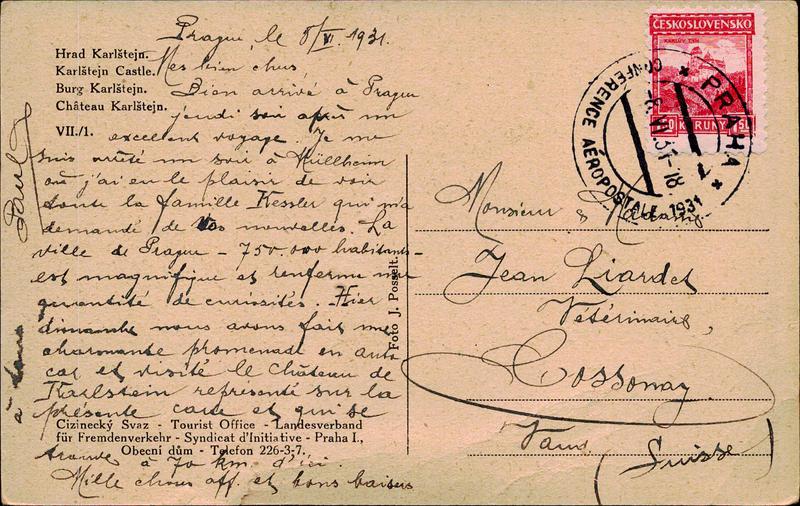 Prague, le 8/VI. 1931.
Hrad Karlštejn.
Karlštejn Castle.
Burg Karlštejn.
Château Karlštejn.
VII./1.
Mes bien chers,
Bien arrivé à Prague
jeudi soir après un
excellent voyage. Je me
suis arrêté un soir à Müllheim
où j'ai eu le plaisir de voir
toute la famille Kessler qui m'a
demandé de vos nouvelles. La
ville de Prague - 750.000 habitants -
est magnifique et renferme une
quantité de curiosités. Hier
dimanche nous avons fait une
charmante promenade en auto
car et visité le Château de
Karlstein représenté sur la
présente carte et qui se
Cizinecký Svaz - Tourist Office - Landesverband
für Fremdenverkehr - Syndicat d'Initiative - Praha I.,
Obecní dům - Telefon 226-3-7.
trouve à 70 km. d'ici.
Mille choses aff. et bons baisers
à tous
Paul
Foto J. Posselt.
ČESKOSLOVENSKO
KARLŮV TÝN
KORUNY 1 50
PRAHA
CONFERENCE AÉROPOSTALE 1931
Monsieur & Madame
Jean Liardet
Vétérinaire,
Cossonay
Vaud (Suisse)